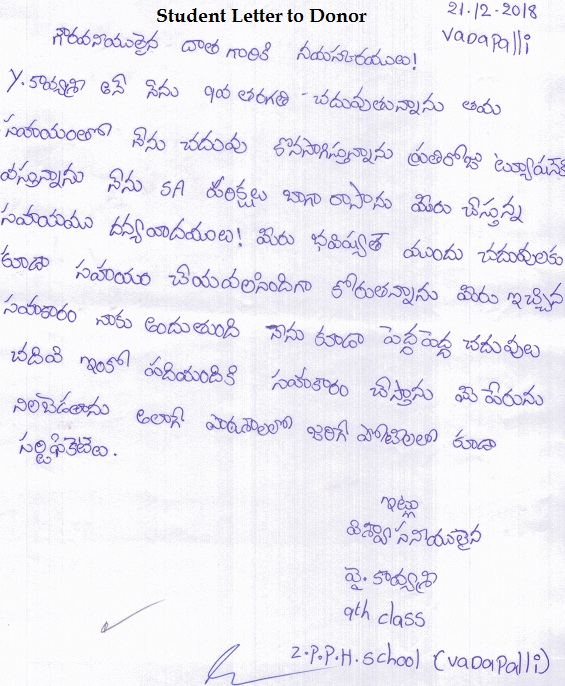 Student Letter to Donor
21-12-2018
Vadapalli
గౌరవనీయులైన దాత గారికి నమస్కారములు!
Y. కావ్యశ్రీ అనే నేను 9వ తరగతి చదువుతున్నాను తమ
సహాయంతో నేను చదువు కొనసాగిస్తున్నాను ప్రతిరోజు ట్యూషన్‌కి
వస్తున్నాను నేను SA పరీక్షలు బాగా రాసాను మీరు చేస్తున్న
సహాయము ధన్యవాదములు! మీరు భవిష్యత్ ముందు చదువులకు
కూడా సహాయం చేయవలసిందిగా కోరుతున్నాను మీరు ఇచ్చిన
సహకారం నాకు అందుతుంది నేను కూడా పెద్ద పెద్ద చదువులు
చదివి ఇంకో పదిమందికి సహకారం చేస్తాను మీ పేరును
నిలబెడతాను అలాగే పాఠశాలలో జరిగే పోటీలలో కూడా
సర్టిఫికెట్లు.
ఇట్లు
విశ్వాసనీయులైన
వై. కావ్యశ్రీ
9th class
Z.P.P.H. School (Vadapalli)